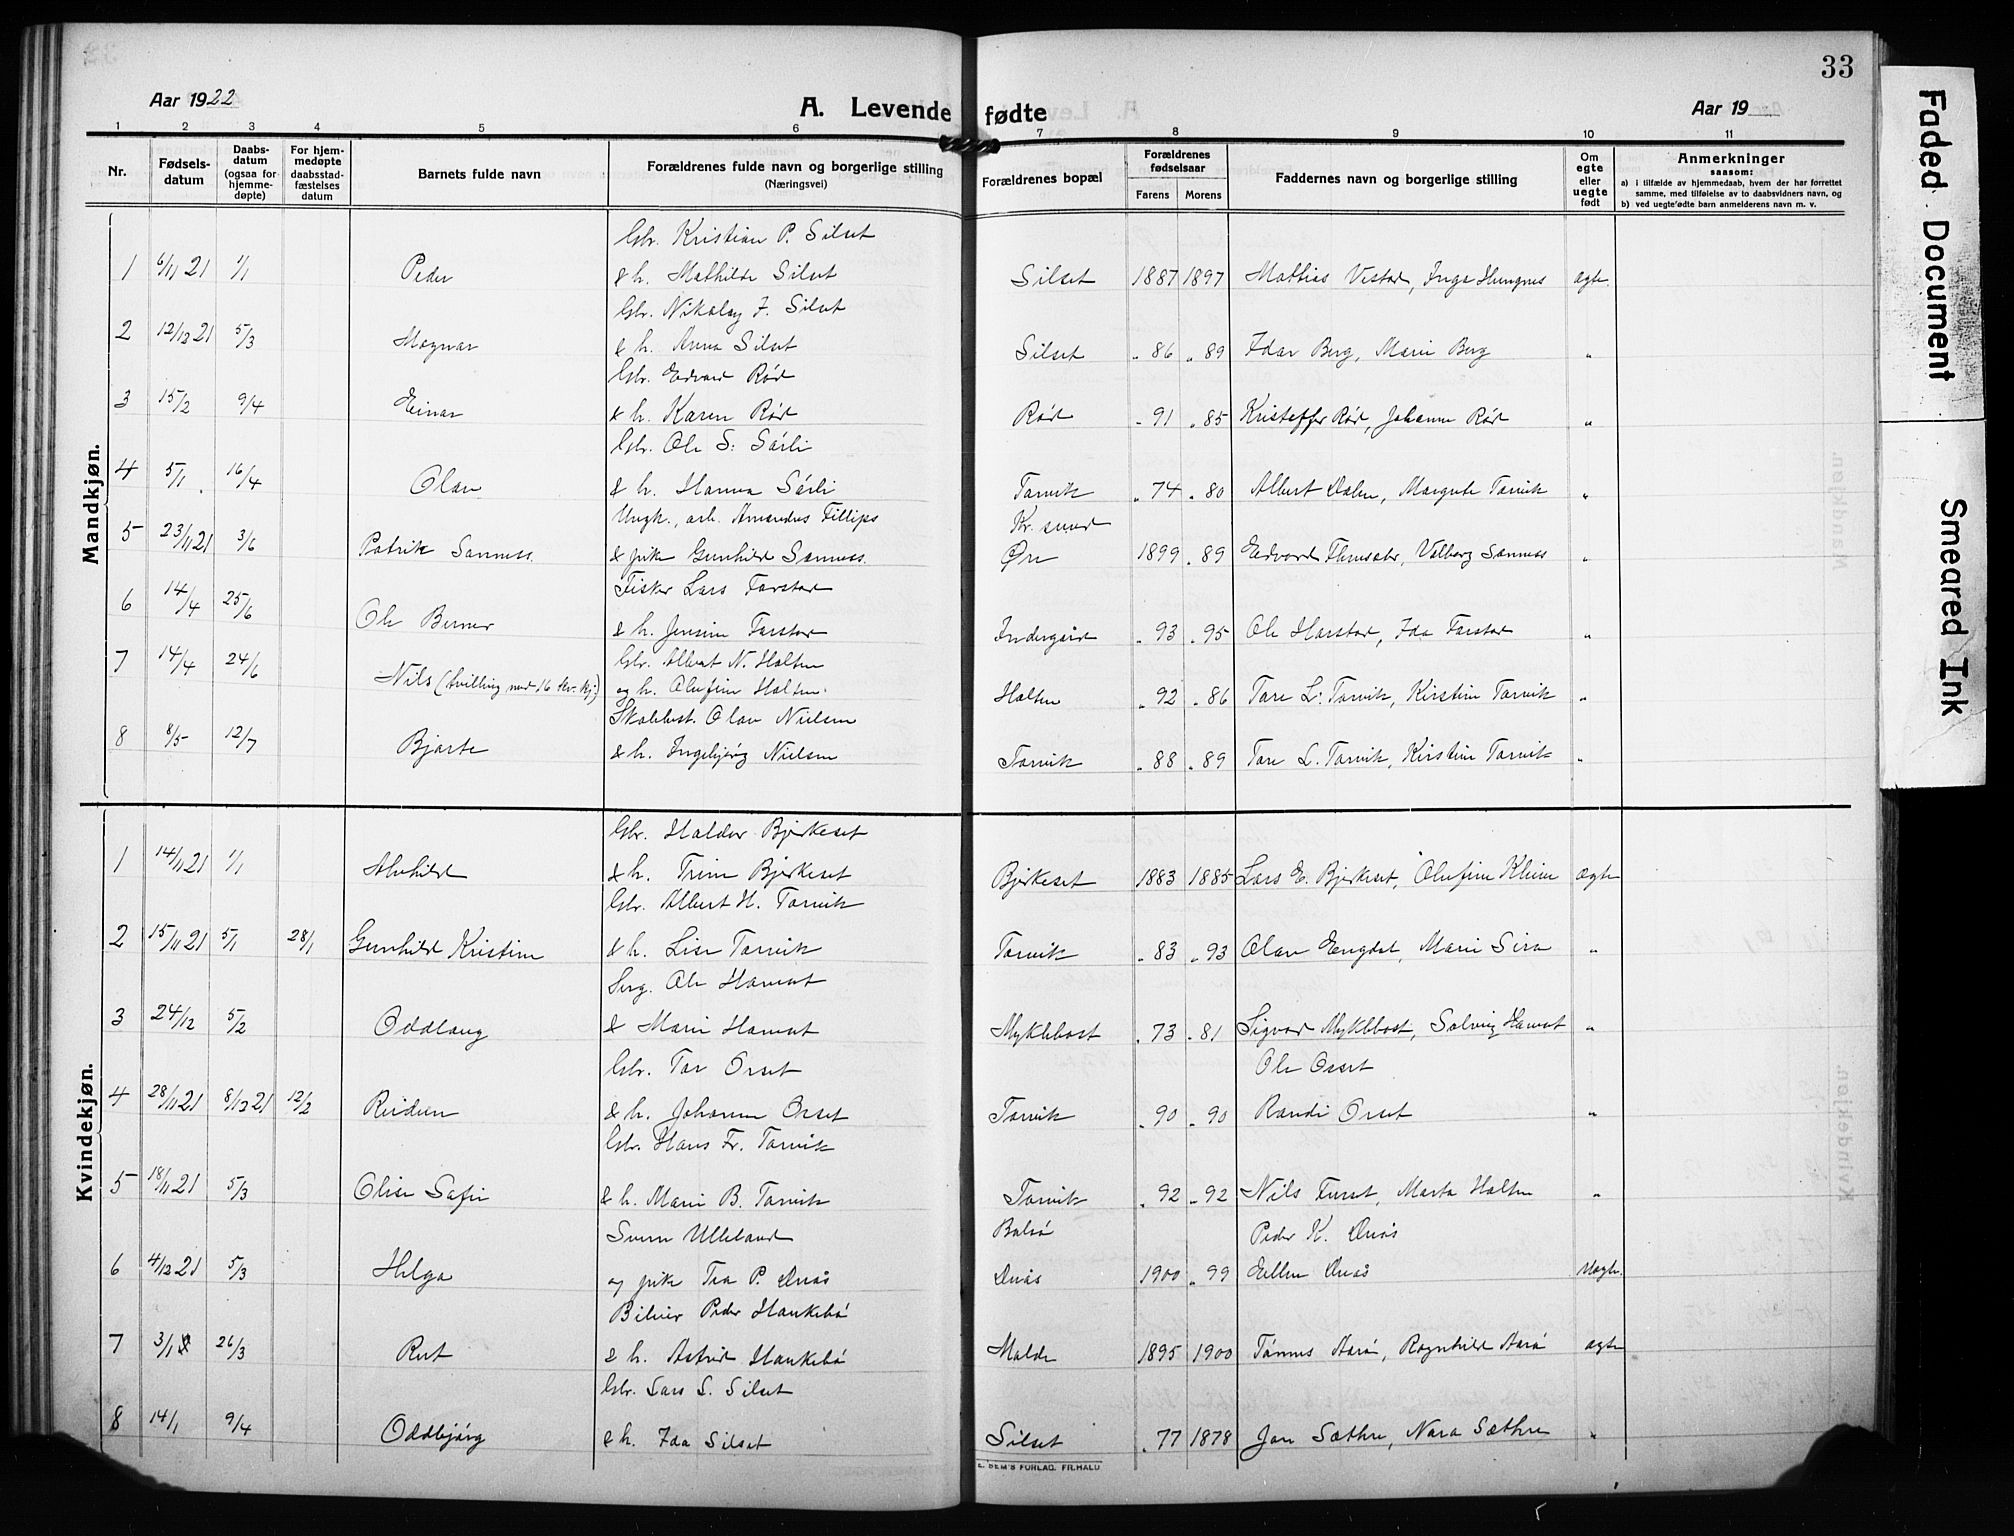 33
Aar 1922
A. Levende fødte
Aar 19
1 2 3 4 5 6 7 8 9 10 11
Nr.
Fødsels-
datum
Daabs-
datum
(ogsaa for
hjemme-
døpte)
For hjem-
medøpte
daabsstad-
fæstelses
datum
Barnets fulde navn
Forældrenes fulde navn og borgerlige stilling
(Næringsvei)
Forældrenes bopæl
Forældrenes
fødselsaar
Farens Morens
Faddernes navn og borgerlige stilling
Om
egte
eller
uegte
født
Anmerkninger
saasom:
a) i tilfælde av hjemmedaab, hvem der har forrettet
samme, med tilføielse av to daabsvidners navn, og
b) ved uegtefødte barn anmelderens navn m. v.
Mandkjøn.
Gbr. Kristian P. Silset
1 6/11 21 1/1 Peder & h. Mathilde Silset Silset 1887 1897 Mathias Vestad, Inga Hungnes ægte
Gbr. Nikolay J. Silset
2 12/12 21 5/3 Magnar & h. Anna Silset Silset " 86 " 89 Idar Berg, Marie Berg "
Gbr. Edvard Rød
3 15/2 9/4 Einar & h. Karen Rød Rød " 91 " 85 Kristoffer Rød, Johanne Rød "
Gbr. Ole S. Sørli
4 5/1 16/4 Olav & h. Hanna Sørli Torvik " 74 " 80 Albert Dalen, Margrete Torvik "
Ungk., arb. Amandus Fillips Kr. sund
5 23/11 21 3/6 Patrik Sannes & pike Gunhild Sannes. Øre 1899 " 89 Edvard Valborg Sannes "
Fisker Lars Farstad
6 14/4 25/6 Ole Berner & h. Jensine Farstad Indergård " 93 " 95 Ole Harstad, Ida Farstad "
Gbr. Albert N. Holten
7 14/4 24/6 Nils (tvilling med 16 kv.kj.) og h. Olufine Holten Holten " 92 " 86 Tore L. Torvik, Kirstine Torvik "
Skolebest. Olav Nielsen
8 8/5 12/7 Bjarte & h. Ingebjørg Nielsen Torvik " 88 " 89 Tore L. Torvik, Kirstine Torvik "
Kvindekjøn.
Gbr. Haldor Bjerkeset
1 14/11 21 1/1 Alvhild & h. Trine Bjerkeset Bjerkeset 1883 1885 Lars E. Bjerkeset, Olufine Kleive Ægte
Gbr. Albert H. Torvik
2 15/11 21 5/1 28/1 Gunhild Kristine & h. Lise Torvik Torvik " 83 " 93 Olav Engdal, Marie Sira "
Serg. Ole Hamset
3 24/12 5/2 Oddlaug & Marie Hamset Myklebost " 73 " 81 Sigvard Myklebost, Solveig Hamset "
Gbr. Tor Orset Ole Orset
4 28/11 21 8/12 21 12/2 Reidun & h. Johanne Orset Torvik " 90 " 90 Randi Orset "
Gbr. Hans Fr. Torvik
5 18/11 21 5/3 Olise Sofie & h. Marie B. Torvik Torvik " 92 " 92 Nils Furset, Marta Holten "
Svein Ulleland Bolsø Peder K. Arås
6 4/12 21 5/3 Helga og pike Tea P. Arås Arås 1900 " 99 Ellen Arås Uægte
Bileier Peder Haukebø
7 3/1 26/3 Rut & h. Astrid Haukebø Molde 1895 1900 Tønnes Aarø, Ragnhild Aarø ægte
Gbr. Lars L. Silset
8 14/1 9/4 Oddbjørg & h. Ida Silset Silset " 77 1878 Jon Sæthre, Nora Sæthre "
E. SEM'S FORLAG. FR.HALD
Faded Document
Smeared Ink